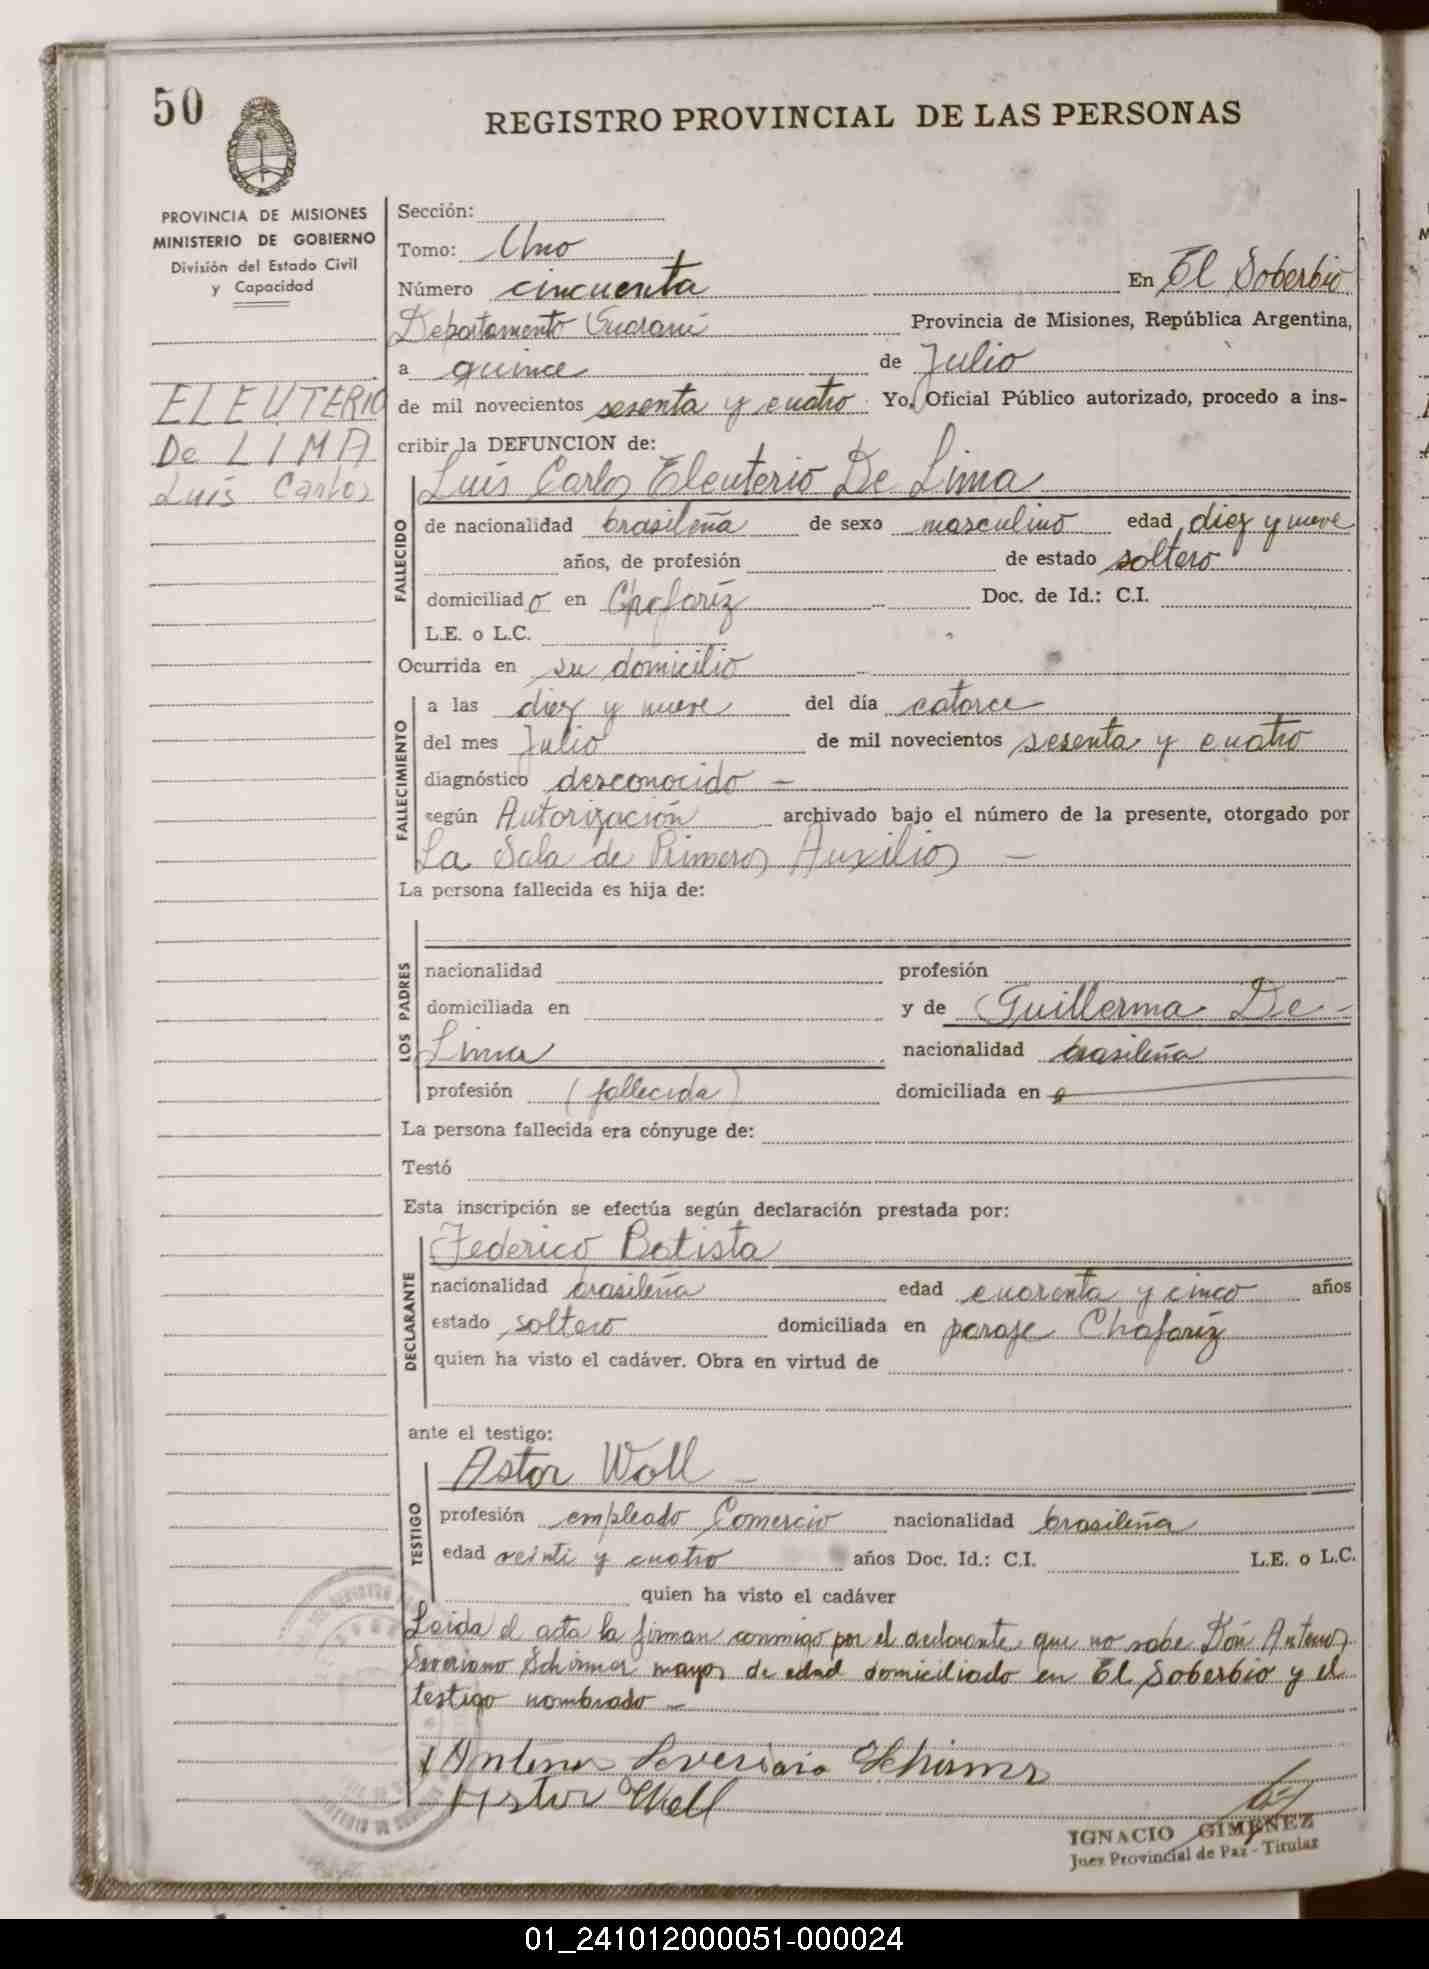 50
REGISTRO PROVINCIAL DE LAS PERSONAS
PROVINCIA DE MISIONES
MINISTERIO DE GOBIERNO
División del Estado Civil
y Capacidad
ELEUTERIO
De LIMA
Luís Carlos
Sección:
Tomo: Uno
Número cincuenta En El Soberbio
Departamento Guaraní Provincia de Misiones, República Argentina,
a quince de Julio
de mil novecientos sesenta y cuatro Yo, Oficial Público autorizado, procedo a ins-
cribir la DEFUNCION de:
FALLECIDO
Luís Carlos Eleuterio De Lima
de nacionalidad brasileña de sexo masculino edad diez y nueve
años, de profesión de estado soltero
domiciliado en Chafaríz Doc. de Id.: C.I.
L.E. o L.C.
Ocurrida en su domicilio
FALLECIMIENTO
a las diez y nueve del día catorce
del mes Julio de mil novecientos sesenta y cuatro
diagnóstico desconocido —
según Autorización archivado bajo el número de la presente, otorgado por
La Sala de Primeros Auxilios —
La persona fallecida es hija de:
LOS PADRES
nacionalidad profesión
domiciliada en y de Guillerma De -
Lima nacionalidad brasileña
profesión (fallecida) domiciliada en
La persona fallecida era cónyuge de:
Testó
Esta inscripción se efectúa según declaración prestada por:
DECLARANTE
Federico Batista
nacionalidad brasileña edad cuarenta y cinco años
estado soltero domiciliada en paraje Chafaríz
quien ha visto el cadáver. Obra en virtud de
ante el testigo:
TESTIGO
Astor Woll —
profesión empleado Comercio nacionalidad brasileña
edad veinti y cuatro años Doc. Id.: C.I. L.E. o L.C.
quien ha visto el cadáver
Leida el acta la firman conmigo por el declarante, que no sabe Don Antenor
Severiano Schirmer mayor de edad domiciliado en El Soberbio y el
testigo nombrado —
Antenor Severiano Schirmer
Astor Woll
IGNACIO GIMENEZ
Juez Provincial de Paz - Titular
01_241012000051-000024